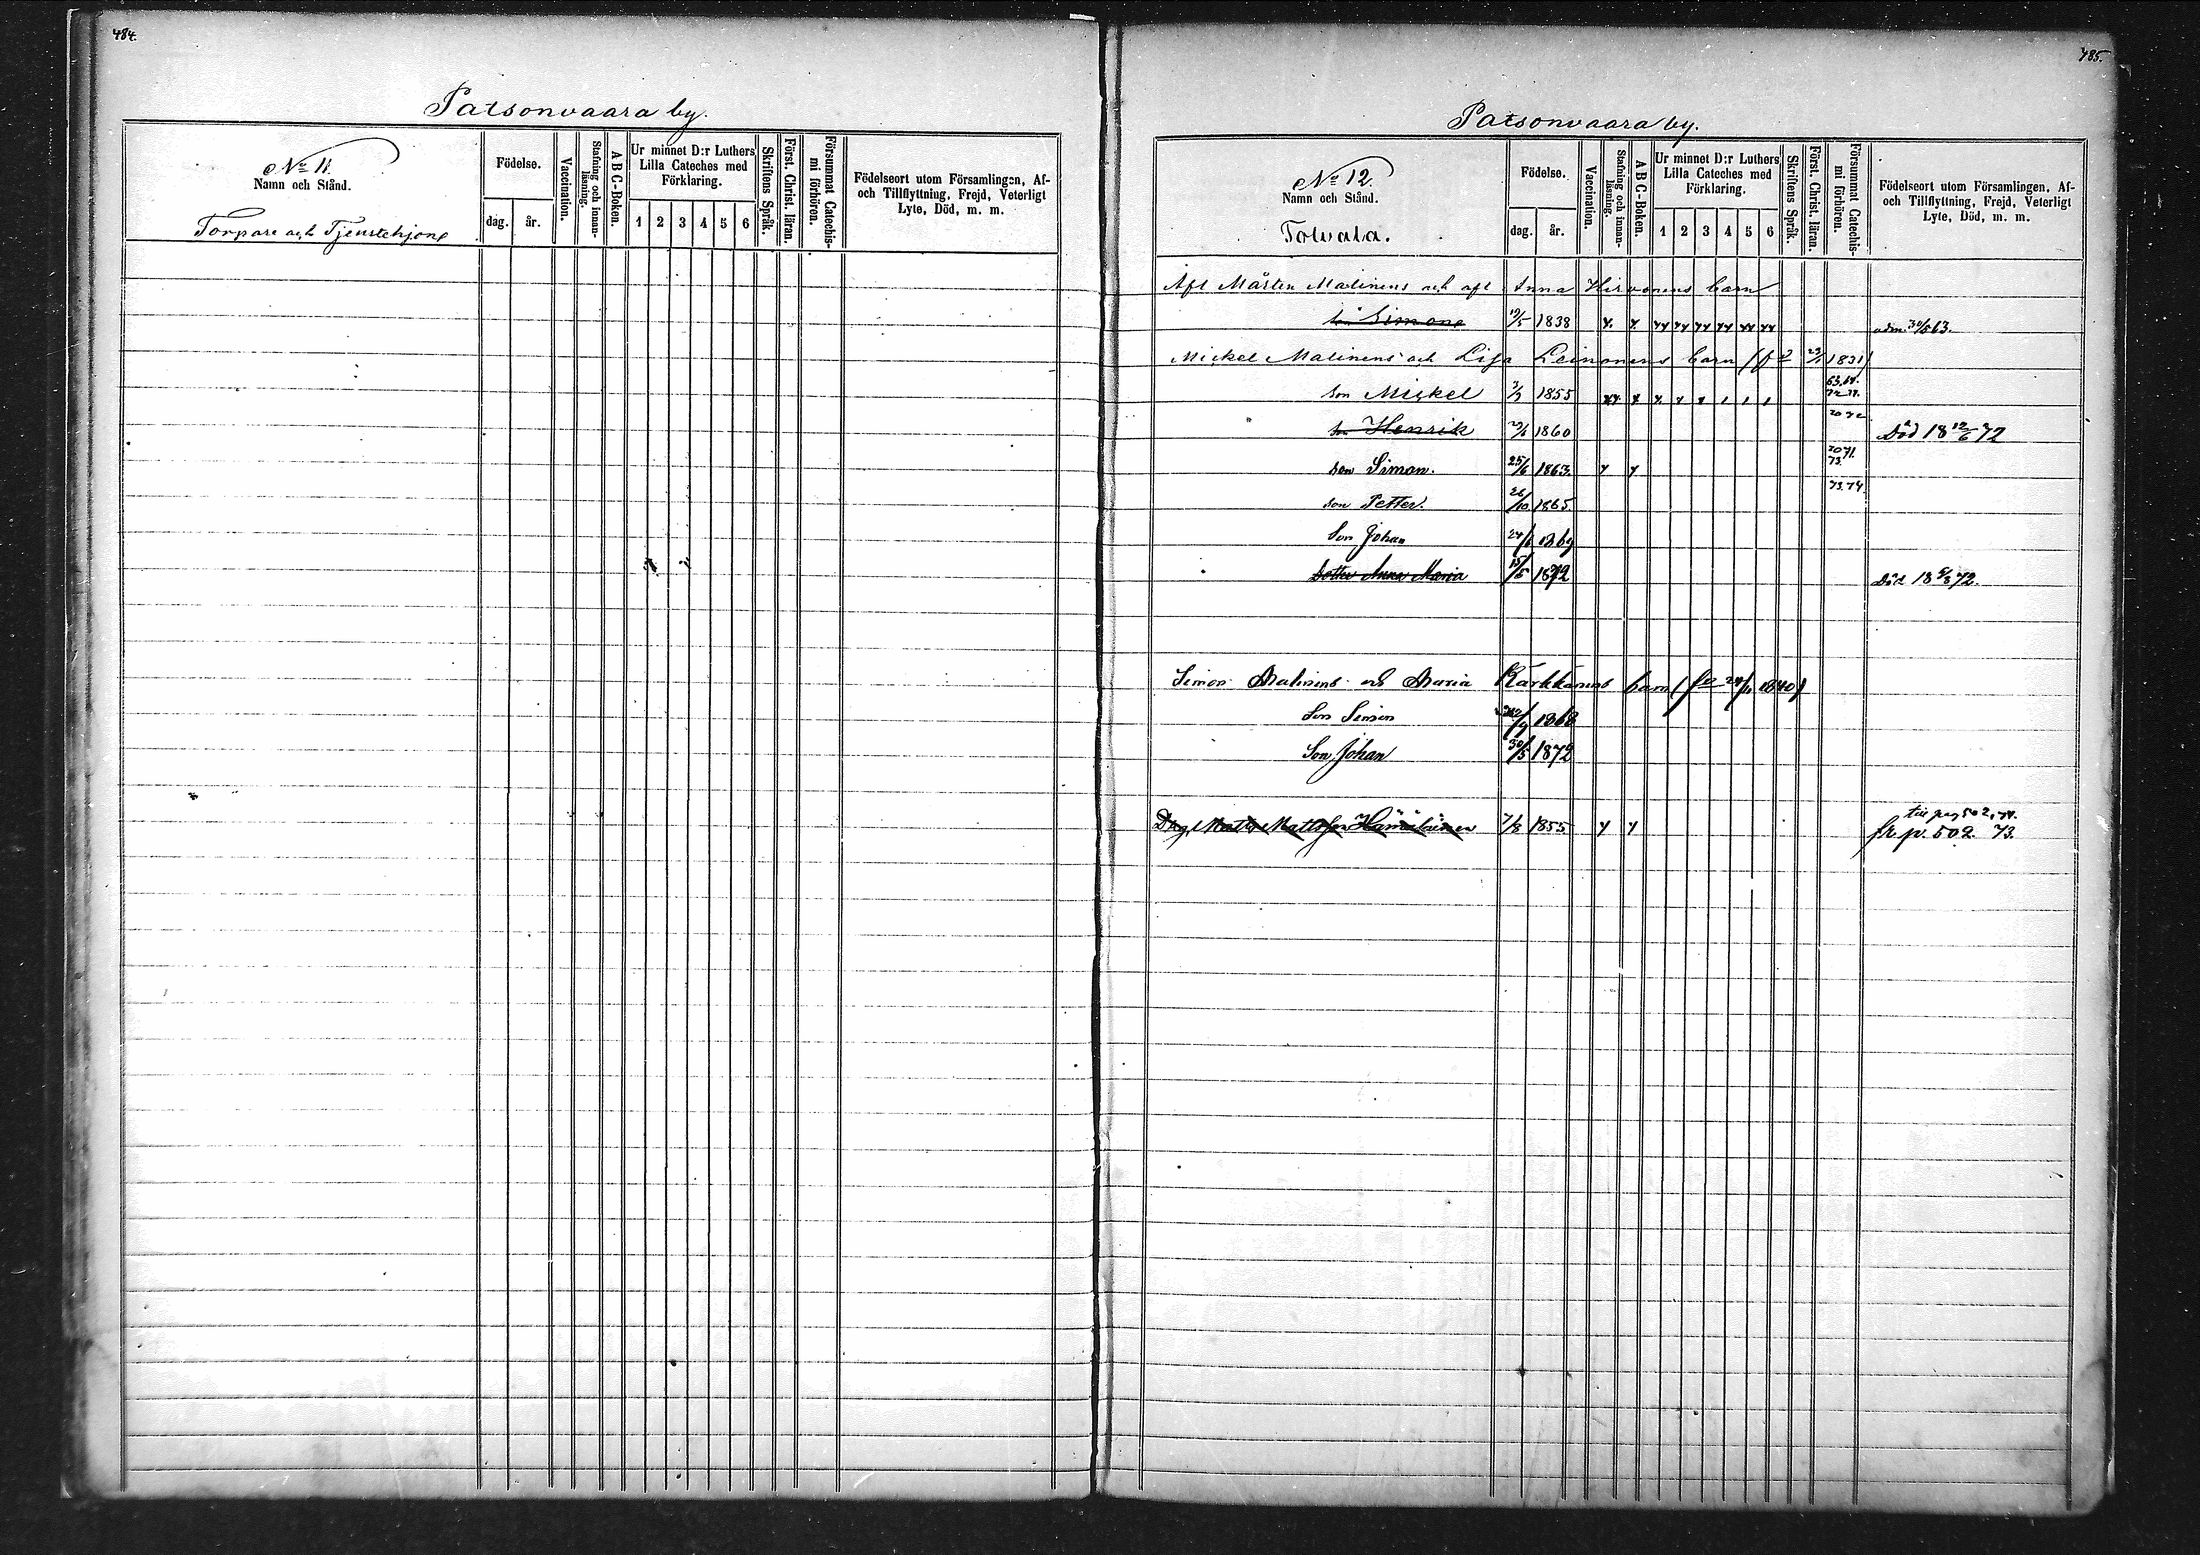 484.
Patsonvaara by.
No 11.
Namn och Stånd.
Torpare och Tjenstehjone
Födelse.
dag. år.
Vaccination.
Stafning och innanläsning.
A B C-Boken.
Ur minnet D:r Luthers Lilla Cateches med Förklaring.
1 2 3 4 5 6
Skriftens Språk.
Först. Christ. läran.
Försummat Catechismi förhören.
Födelseort utom Församlingen, Af-
och Tillflyttning, Frejd, Veterligt
Lyte, Död, m. m.
485.
Patsonvaara by.
No 12.
Namn och Stånd.
Tolvala.
Födelse.
dag. år.
Vaccination.
Stafning och innanläsning.
A B C-Boken.
Ur minnet D:r Luthers Lilla Cateches med Förklaring.
1 2 3 4 5 6
Skriftens Språk.
Först. Christ. läran.
Försummat Catechismi förhören.
Födelseort utom Församlingen, Af-
och Tillflyttning, Frejd, Veterligt
Lyte, Död, m. m.
Afl Mårten Malinens och afl Anna Hirvonens barn
son Simon 19/5 1838 adm. 30/5 63.
Mickel Malinens och Lisa Leinonens barn (fd 1831)
son Mickel 3/7 1855
son Henrik 1860 Död 18 12/6 72
son Simon. 25/6 1863. 70 71. 73.
son Petter. 26/10 1865. 73.74.
Son Johan 24/6 1869
Dotter Anna Maria 15/5 1872 Död 18 6/8 72.
Simon Malinens och Maria Karhkanens barn (fd 24/11 1840)
Son Simon 1868
Son Johan 30/5 1872
till pag 502, 74.
Dräg. Matts Mattsson Hämäläinen 7/8 1855 fr. p. 502. 73.